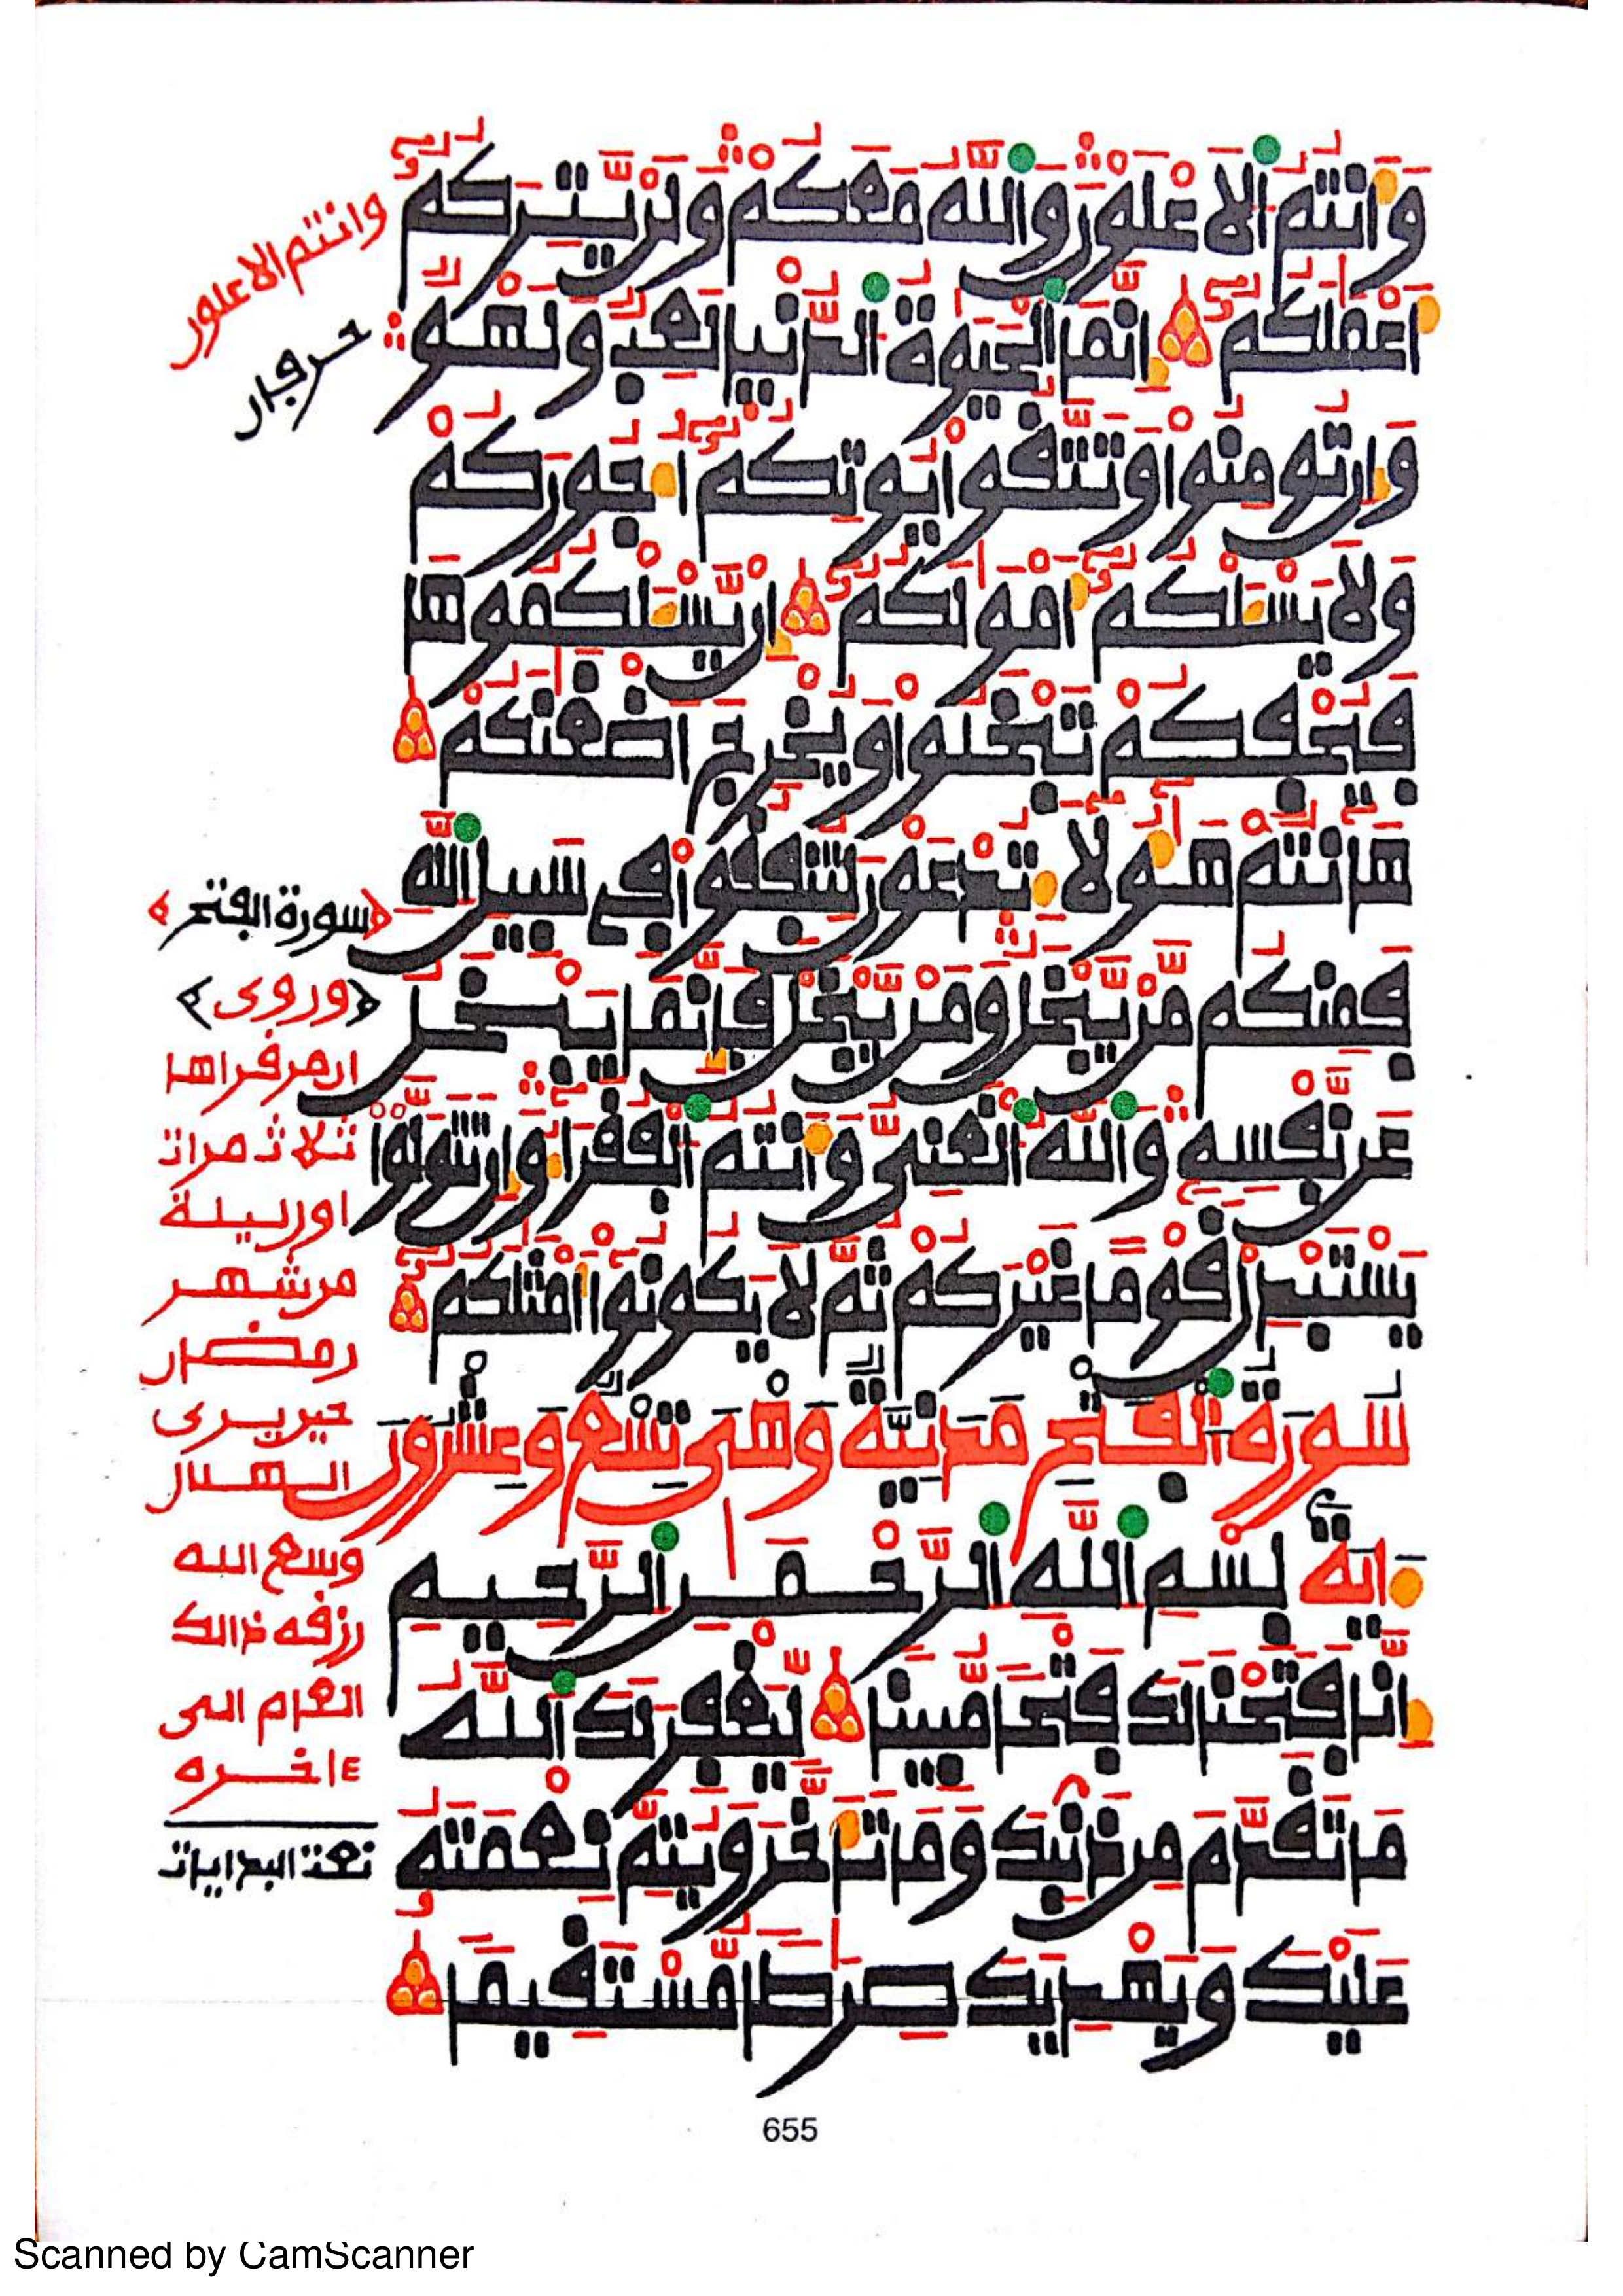 وَأَنتُمُ الْأَعْلَوْنَ وَاللَّهُ مَعَكُمْ وَلَنْ يَّتِرَكُمُ
أَعْمَلَكُمُ إِنَّمَا الْحَيَوةُ الدُّنْيَا لَعِبٌ وَلَهْوٌ
وَإِن تُومِنُوا وَتَتَّقُوا يُوتِكُمُ أُجُورَكُمْ
وَلَا يَسْـَٔلْكُمُ أَمْوَلَكُمُ إِنْ يَّسْـَٔلْكُمُوهَا
فَيُحْفِكُمْ تَبْخَلُوا وَيُخْرِجَ اَضْغَنَكُمْ
هَانتُمْ هَؤُلَاءِ تُدْعَوْنَ لِتُنفِقُوا فِي سَبِيلِ اللَّهِ
فَمِنكُم مَّنْ يَّبْخَلُ وَمَنْ يَّبْخَلْ فَإِنَّمَا يَبْخَلُ
عَن نَّفْسِهِ وَاللَّهُ الْغَنِيُّ وَأَنتُمُ الْفُقَرَاءُ وَإِن تَتَوَلَّوْا
يَسْتَبْدِلْ قَوْمًا غَيْرَكُمْ ثُمَّ لَا يَكُونُوا أَمْثَلَكُمُ
سُورَةُ الْفَتْحِ مَدَنِيَّةٌ وَهْيَ تِسْعٌ وَعِشْرُونَ
ءَايَةً بِسْمِ اللَّهِ الرَّحْمَنِ الرَّحِيمِ
إِنَّا فَتَحْنَا لَكَ فَتْحًا مُّبِينًا لِّيَغْفِرَ لَكَ اللَّهُ
مَا تَقَدَّمَ مِن ذَنبِكَ وَمَا تَأَخَّرَ وَيُتِمَّ نِعْمَتَهُ
عَلَيْكَ وَيَهْدِيَكَ صِرَطًا مُّسْتَقِيمًا
وانتم الاعلون
حرفان
سورة الفتح
وروى
ان من قراها
ثلاث مرات
اول ليلة
من شهر
رمضان
حين يرى
الهلال
وسع الله
رزقه ذالك
العام الى
ءاخره
نعت البدايات
655
Scanned by CamScanner